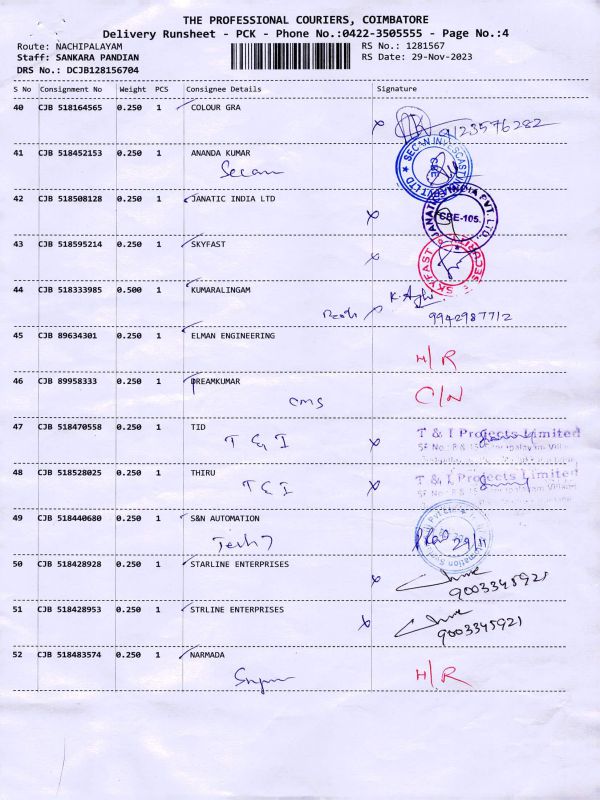 THE PROFESSIONAL COURIERS, COIMBATORE
Delivery Runsheet - PCK - Phone No.:0422-3505555 - Page No.:4
Route: NACHIPALAYAM
RS No.: 1281567
Staff: SANKARA PANDIAN
RS Date: 29-Nov-2023
DRS No.: DCJB128156704
S No Consignment No Weight PCS Consignee Details Signature
40 CJB 518164565 0.250 1 COLOUR GRA
9123576282
41 CJB 518452153 0.250 1 ANANDA KUMAR
Secan
SECAN INVESCAST PVT LTD
CBE
42 CJB 518508128 0.250 1 JANATIC INDIA LTD
JANATICS INDIA PVT. LTD.
CBE-105.
43 CJB 518595214 0.250 1 SKYFAST
SKYFAST
44 CJB 518333985 0.500 1 KUMARALINGAM
9942987712
45 CJB 89634301 0.250 1 ELMAN ENGINEERING
H/R
46 CJB 89958333 0.250 1 DREAMKUMAR
CMS
C/N
47 CJB 518470558 0.250 1 TID
T & I
T & I Projects Limited
48 CJB 518528025 0.250 1 THIRU
T & I
T & I Projects Limited
49 CJB 518440680 0.250 1 S&N AUTOMATION
29/11
50 CJB 518428928 0.250 1 STARLINE ENTERPRISES
9003345921
51 CJB 518428953 0.250 1 STRLINE ENTERPRISES
9003345921
52 CJB 518483574 0.250 1 NARMADA
H/R